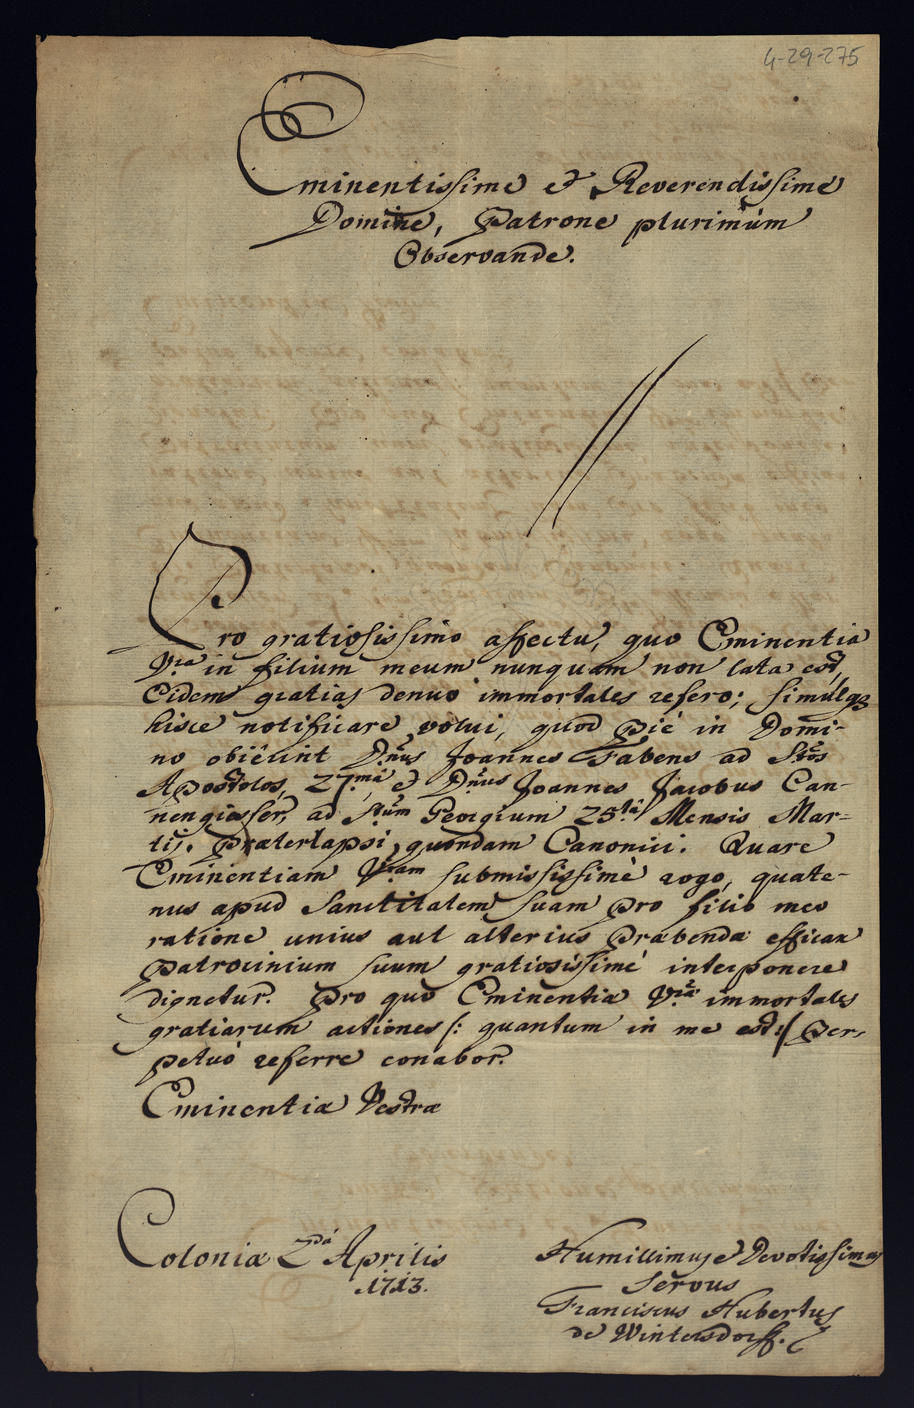 4-29-275
Eminentissime et Reverendissime
Domine, Patrone plurimùm
Observande.
Pro gratiosissimo affectu, quo Eminentia
Vra in filium meum nunquam non lata est,
Eidem gratias denuò immortales refero; simulqȝ
hisce notificare volui, quod piè in Domi-
no obierint Dnus Joannes Fabens ad Stos
Apostolos, 27.ma, et Dnus Joannes Jacobus Can-
nengiesser, ad Stum Georgium 25ta Mensis Mar-
tij. Præterlapsi, quondam Canonici. Quare
Eminentiam Vram submississimè rogo, quate-
nus apud Sanctitatem suam pro filio meo
ratione unius aut alterius Præbendæ efficax
patrocinium suum gratiosissimè interponere
dignetur. Pro quo Eminentiæ Vræ immortales
gratiarum actiones /: quantum in me est :/ per-
petuò referre conabor.
Eminentiæ Vestræ
Coloniæ 2dâ Aprilis
1713.
Humillimus et Devotissimus
Servus
Franciscus Hubertus
de Wintersdorff.